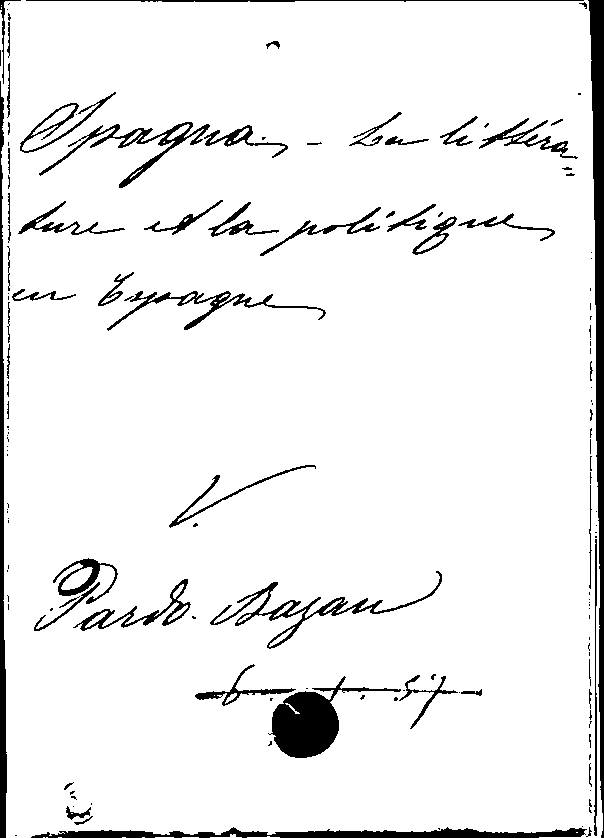 Spagna. - La littéra=
ture et la politique
en Espagne
V.
Pardo. Bazan
6. 1. 57